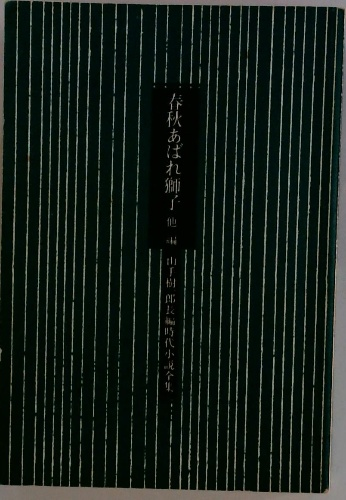 春秋あばれ獅子
他 編
山手樹 郎長編時代小説全集